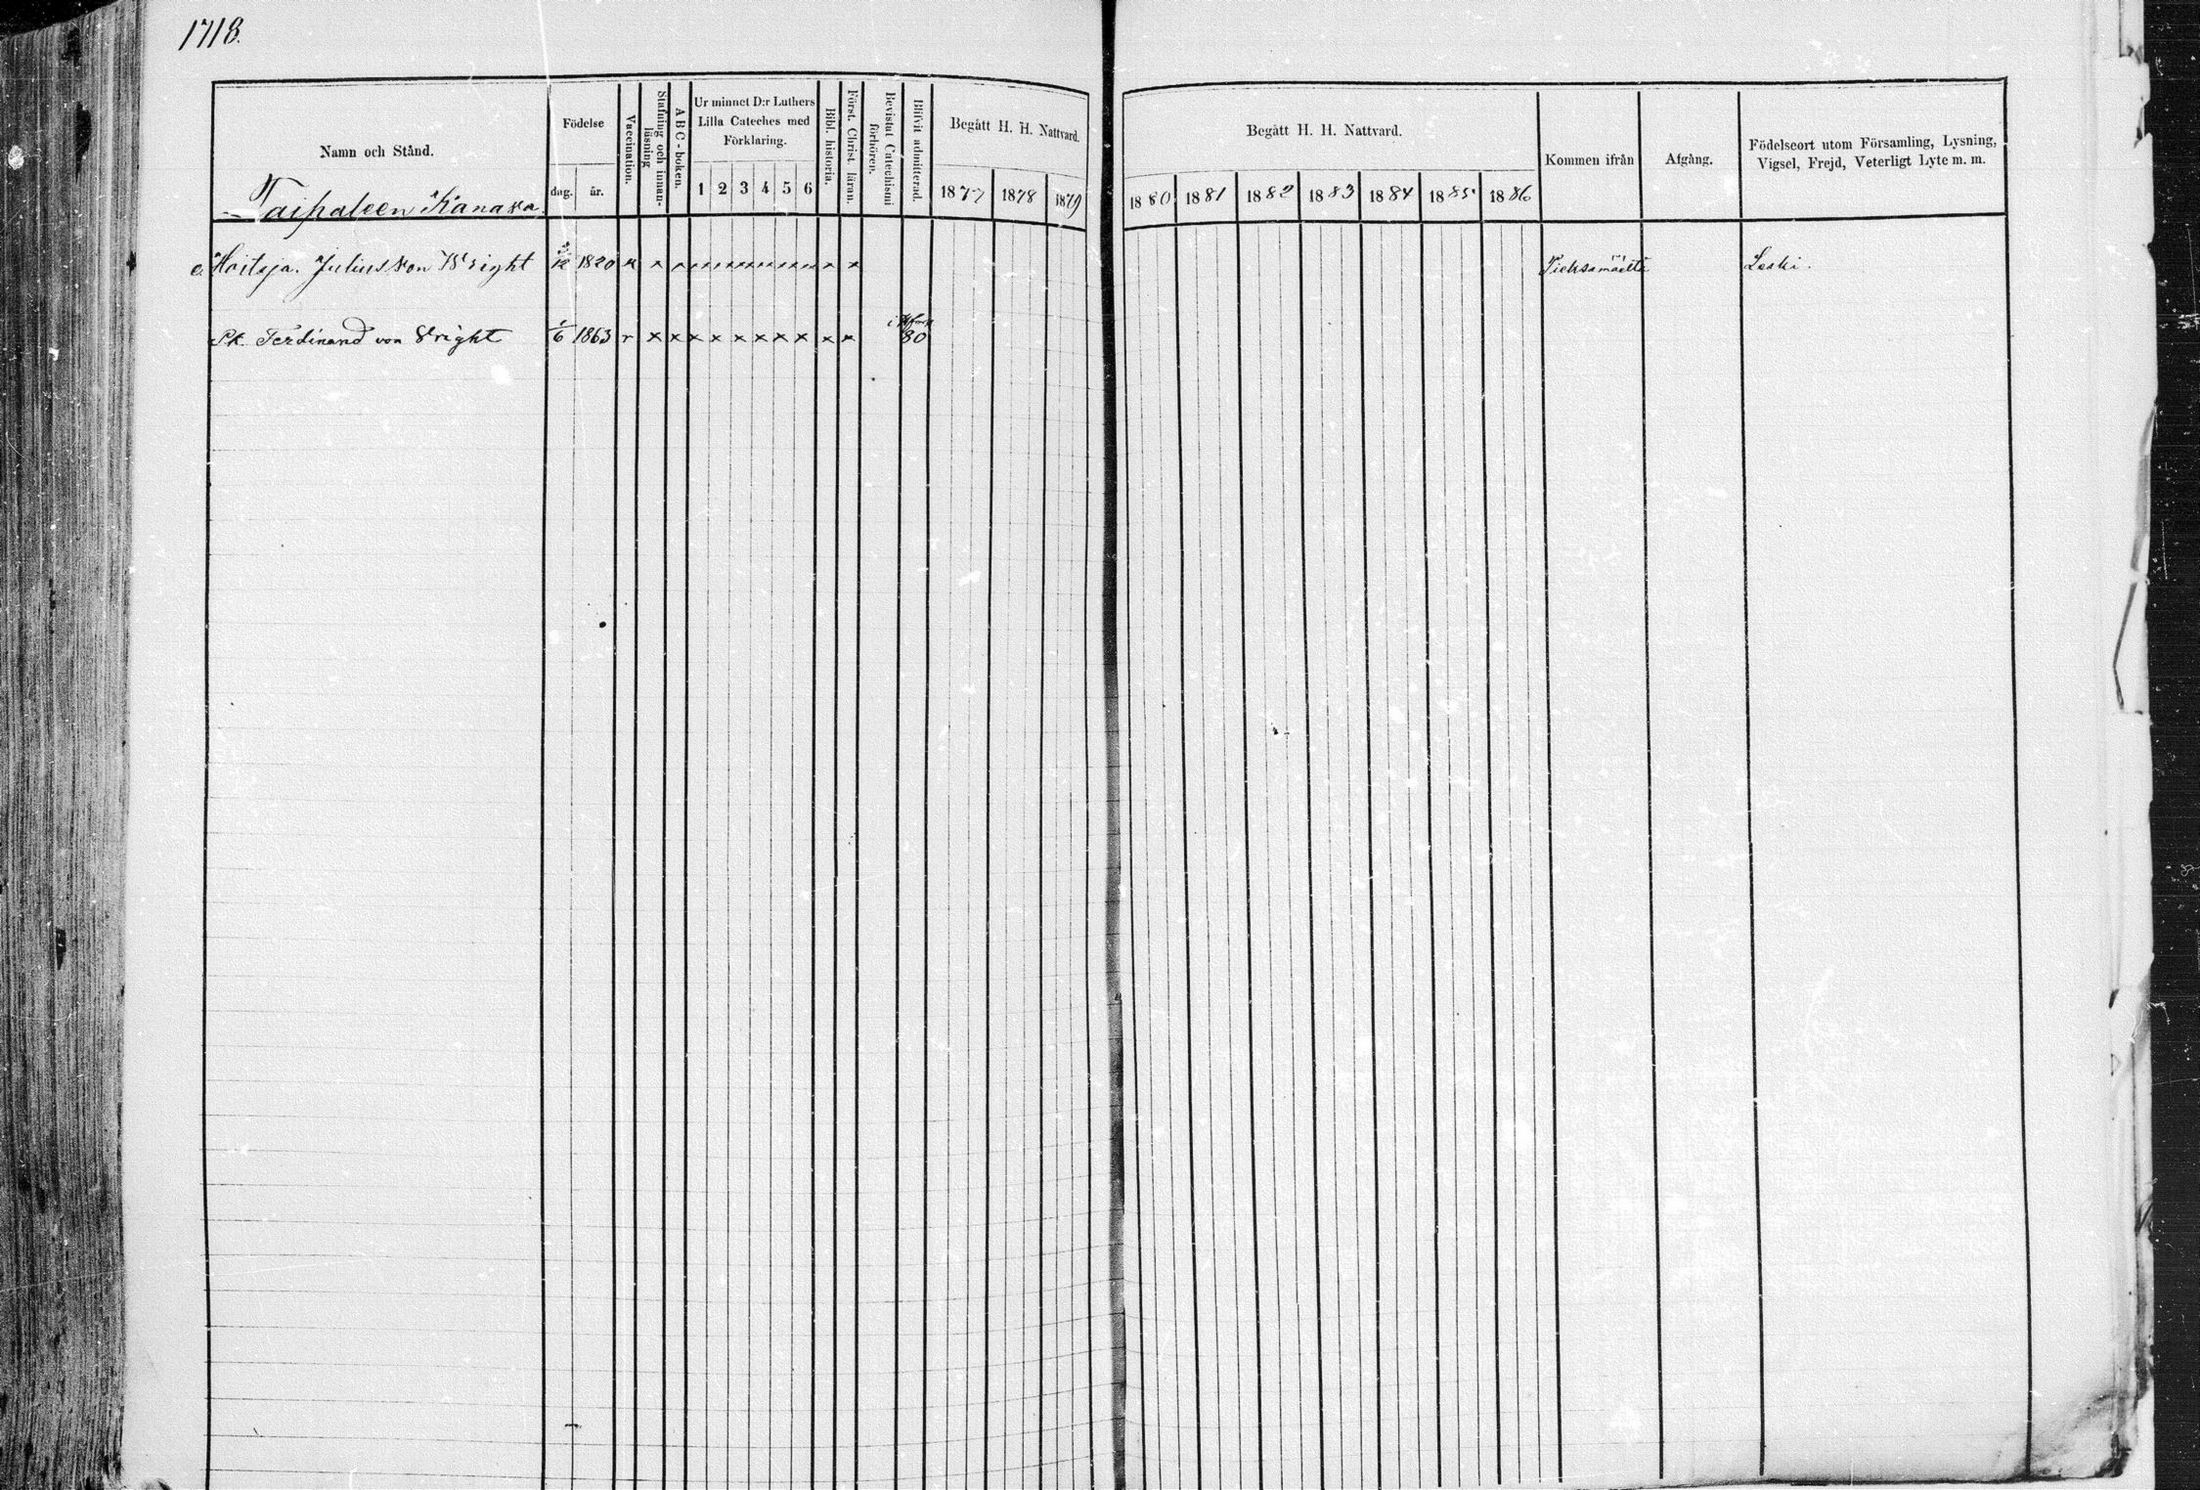 1718.
Namn och Stånd.
Födelse
dag. år.
Vaccination.
Stafning och innan-
läsning
A B C - boken.
Ur minnet D:r Luthers
Lilla Cateches med
Förklaring.
1 2 3 4 5 6
Bibl. historia.
Först. Christ. läran.
Bevistat Catechismi
förhören.
Blifvit admitterad.
Begått H. H. Nattvard.
1877 1878 1879
Begått H. H. Nattvard.
1880 1881 1882 1883 1884 1885 1886
Kommen ifrån
Afgång.
Födelseort utom Församling, Lysning,
Vigsel, Frejd, Veterligt Lyte m. m.
Taipaleen Kanava
Hoitaja. Julius von Wright 1820 Pieksämäeltä Leski.
Pk. Ferdinand von Wright 1/6 1863 r x x x x x x x x x x 80